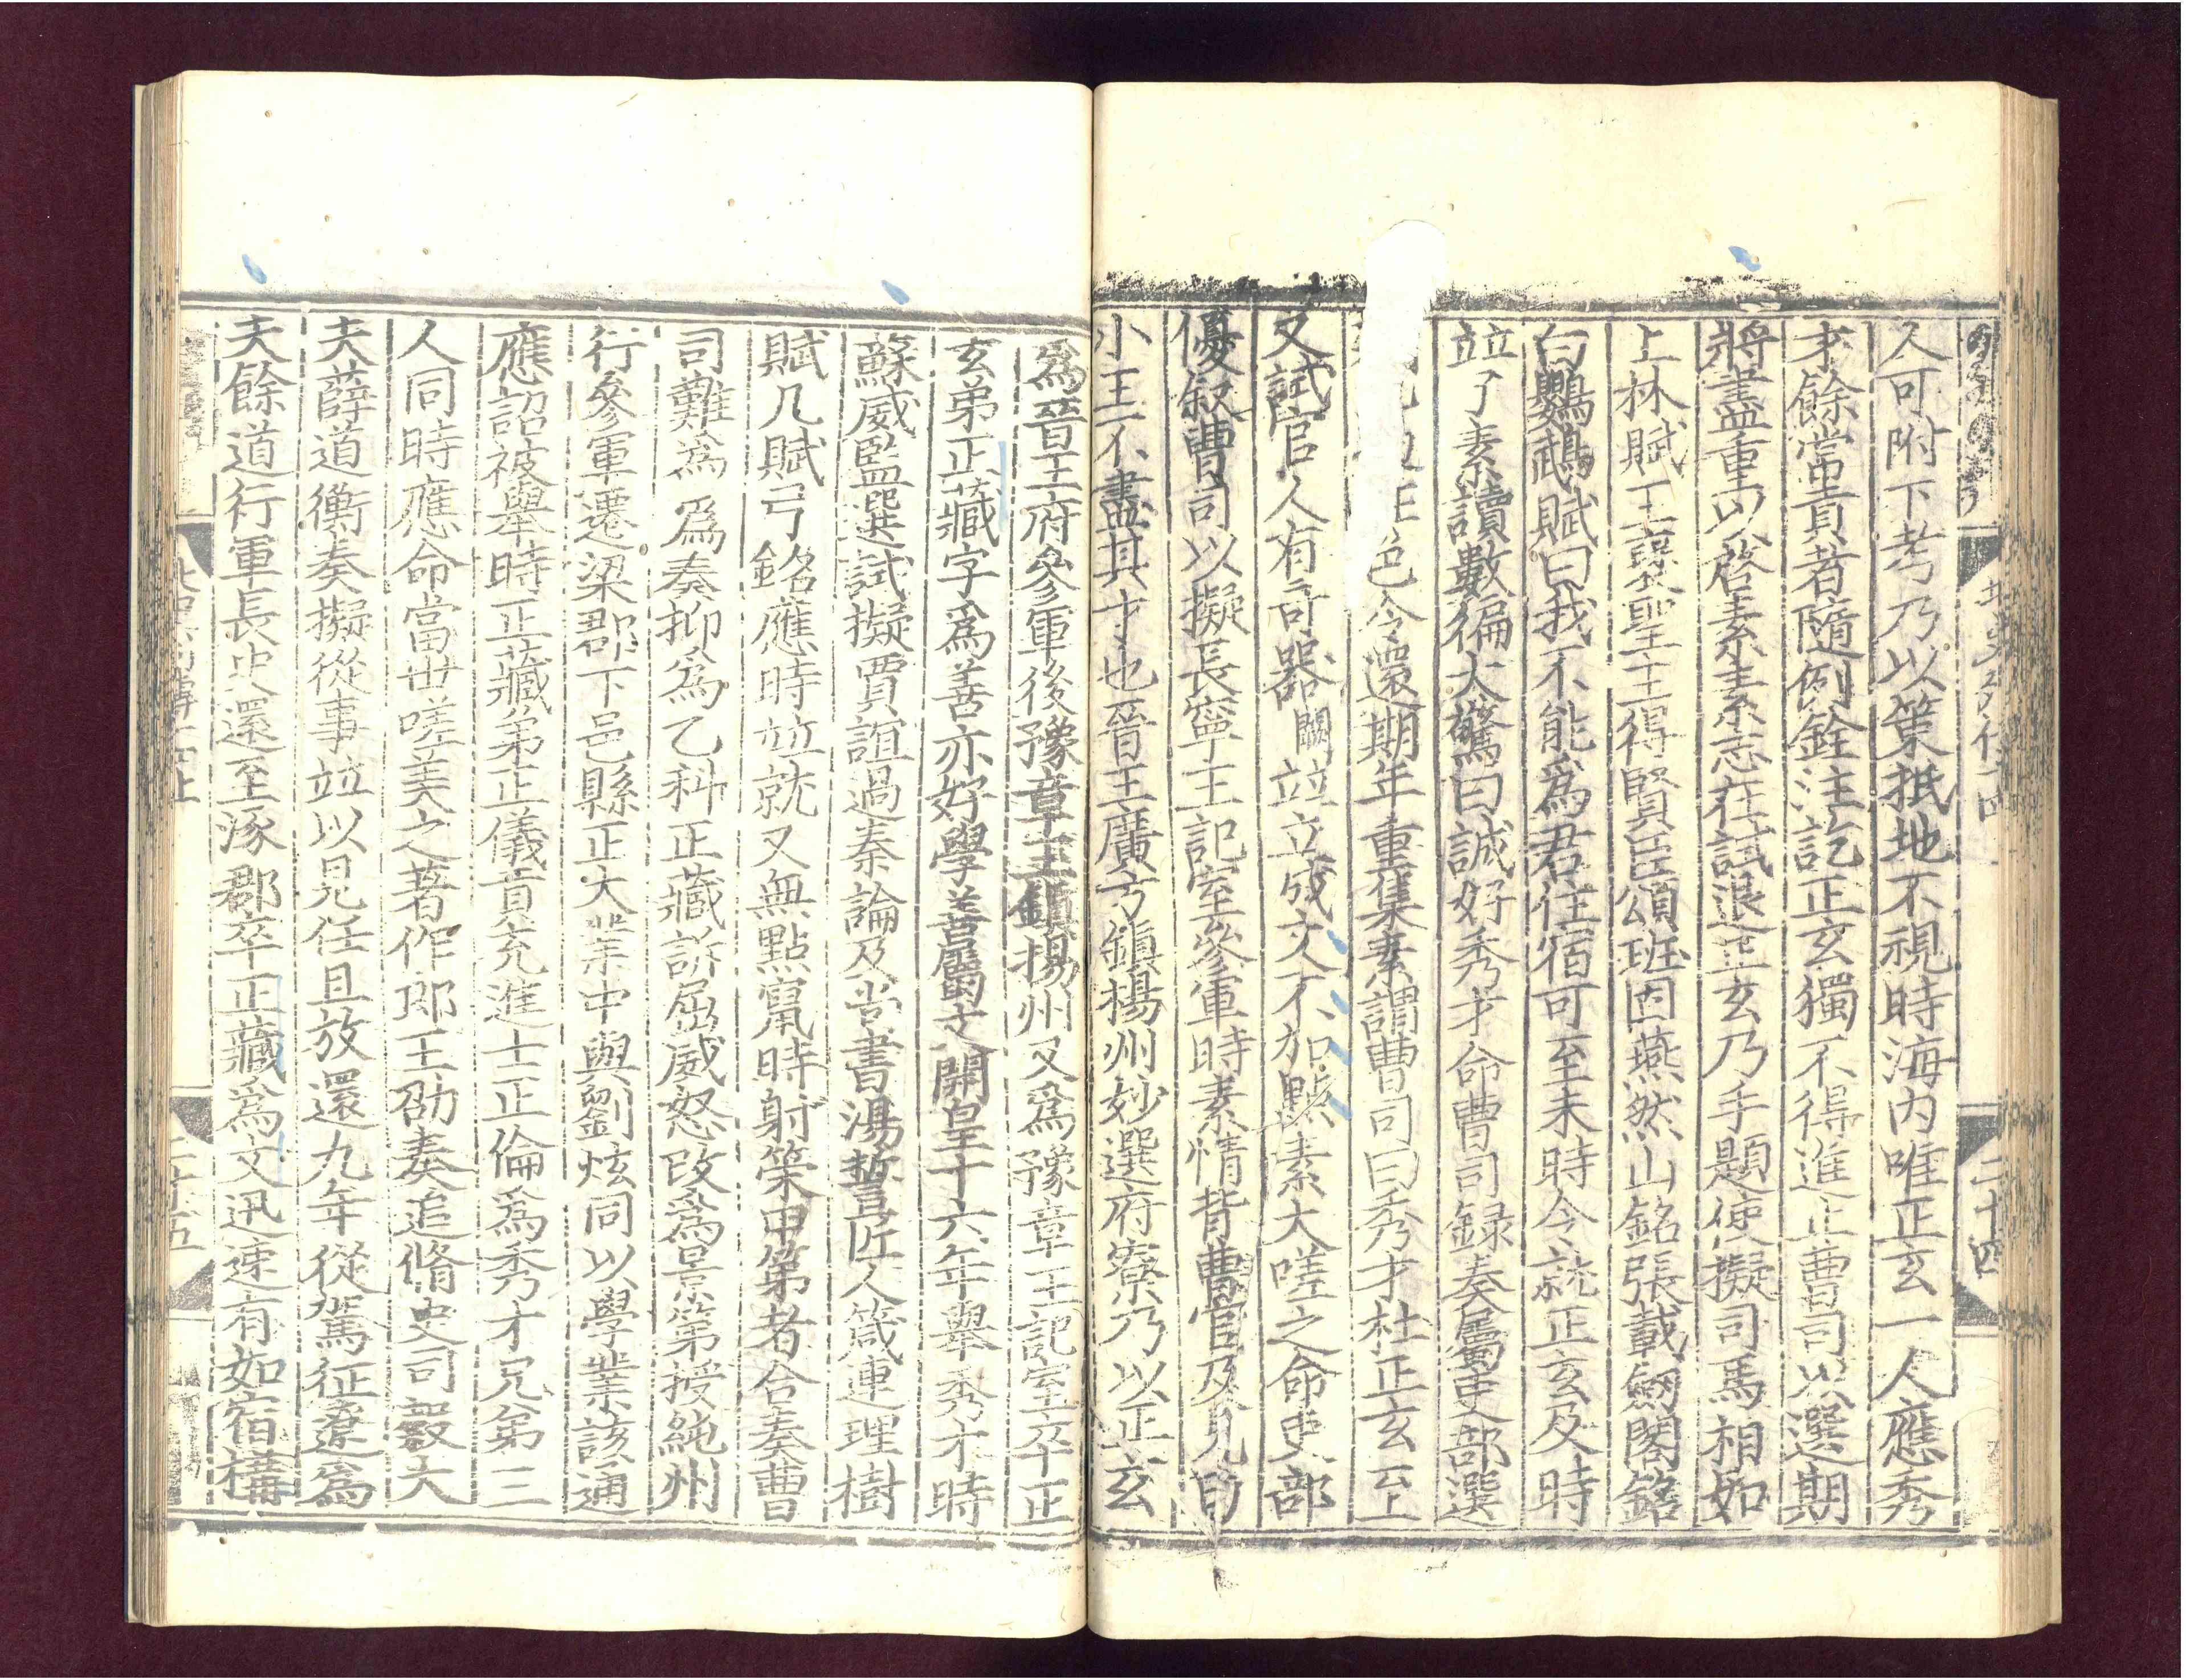 北史列傳十四
二十四
人可附下考乃以策抵地不視時海内唯正玄一人應秀
才餘當貢者隨例銓注訖正玄獨不得進止曹司以選期
將盡重以啓素素志在試退正玄乃手題使擬司馬相如
上林賦王襃聖主得賢臣頌班固燕然山銘張載劒閣銘
白鸚鵡賦曰我不能爲君住宿可至未時令就正玄及時
竝了素讀數徧大驚曰誠好秀才命曹司録奏屬吏部選
色令還期年重集素謂曹司曰秀才杜正玄至
又試官人有奇器闕竝立成文不加點素大嗟之命吏部
優叙曹司以擬長寧王記室參軍時素情背曹官及見曰
小王不盡其才也晉王廣方鎮揚州妙選府寮乃以正玄
爲晉王府參軍後豫章王鎮揚州又爲豫章王記室卒正
玄弟正藏字爲善亦好學善屬文開皇十六年舉秀才時
蘇威監選試擬賈誼過秦論及尚書湯誓匠人箴連理樹
賦几賦弓銘應時竝就又無點竄時射策甲第者合奏曹
司難爲爲奏抑爲乙科正藏訴屈威怒改爲景第授純州
行參軍遷梁郡下邑縣正大業中與劉炫同以學業該通
應詔被舉時正藏弟正儀貢充進士正倫爲秀才兄弟三
人同時應命當世嗟美之著作郎王劭奏追脩史司𨽻大
夫薛道衡奏擬從事竝以見任且放還九年從駕征遼爲
夫餘道行軍長史還至涿郡卒正藏爲文迅速有如宿構
二十五